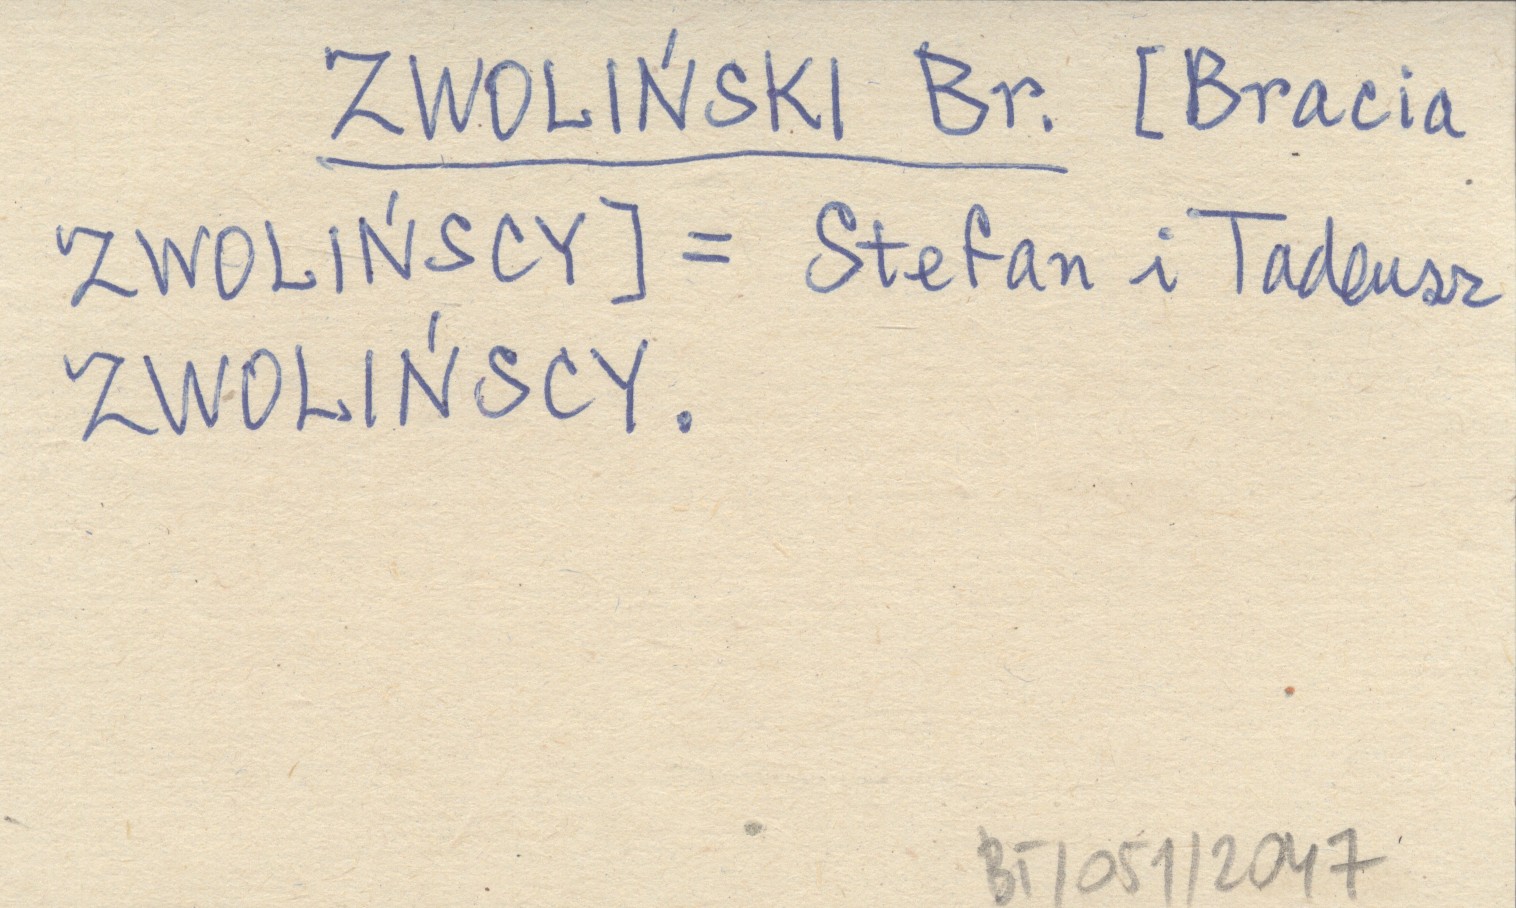 ZWOLIŃSKI Br. [Bracia
ZWOLIŃSCY] = Stefan i Tadeusz
ZWOLIŃSCY.
BT/051/2047